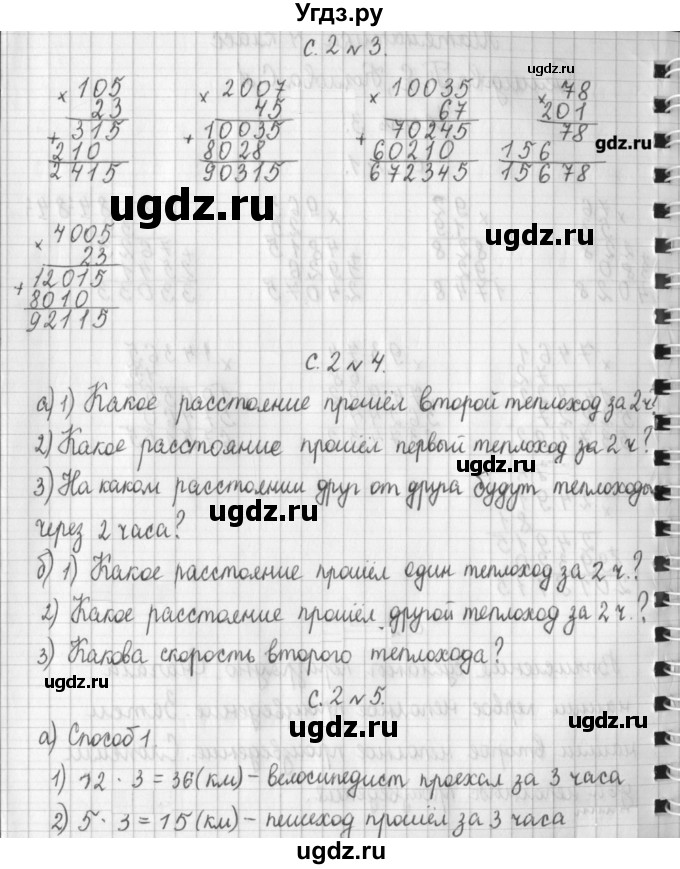 Угдз.ру
с. 2 № 3.
105 2007 10035 78
× 23 × 45 × 67 × 201
315 10035 70245 78
+ 210 + 8028 + 60210 156
2415 90315 672345 15678
4005
× 23
12015
+ 8010
92115
с. 2 № 4.
а) 1) Какое расстояние прошёл второй теплоход за 2ч?
2) Какое расстояние прошёл первый теплоход за 2 ч?
3) На каком расстоянии друг от друга будут теплоходы
через 2 часа?
б) 1) Какое расстояние прошёл один теплоход за 2 ч.?
2) Какое расстояние прошёл другой теплоход за 2 ч.?
3) Какова скорость второго теплохода?
с. 2 № 5.
а) Способ 1.
1) 12 · 3 = 36 (км) – велосипедист проехал за 3 часа
2) 5 · 3 = 15 (км) – пешеход прошёл за 3 часа
ugdz.ru
ugdz.ru
ugdz.ru
ugdz.ru
ugdz.ru
ugdz.ru
ugdz.ru
ugdz.ru
ugdz.ru
ugdz.ru
ugdz.ru
ugdz.ru